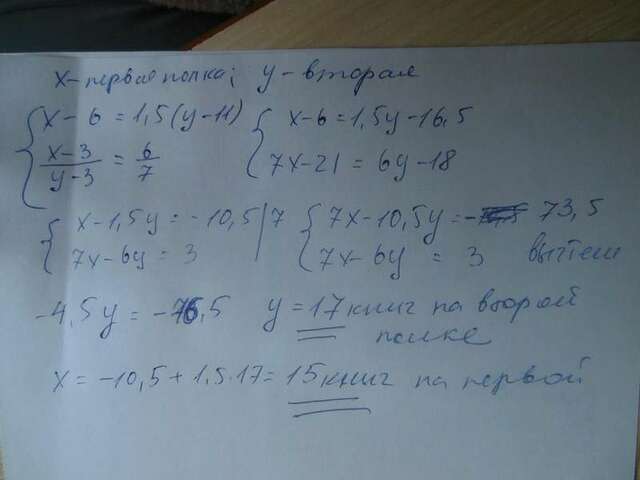 x - первая полка; y - вторая
{ x - 6 = 1,5(y - 11) { x - 6 = 1,5y - 16,5
{ x-3/y-3 = 6/7 { 7x - 21 = 6y - 18
{ x - 1,5y = -10,5 | 7 { 7x - 10,5y = - 73,5
{ 7x - 6y = 3 { 7x - 6y = 3 вычтем
-4,5y = -76,5 y = 17 книг на второй
полке
x = -10,5 + 1,5·17 = 15 книг на первой